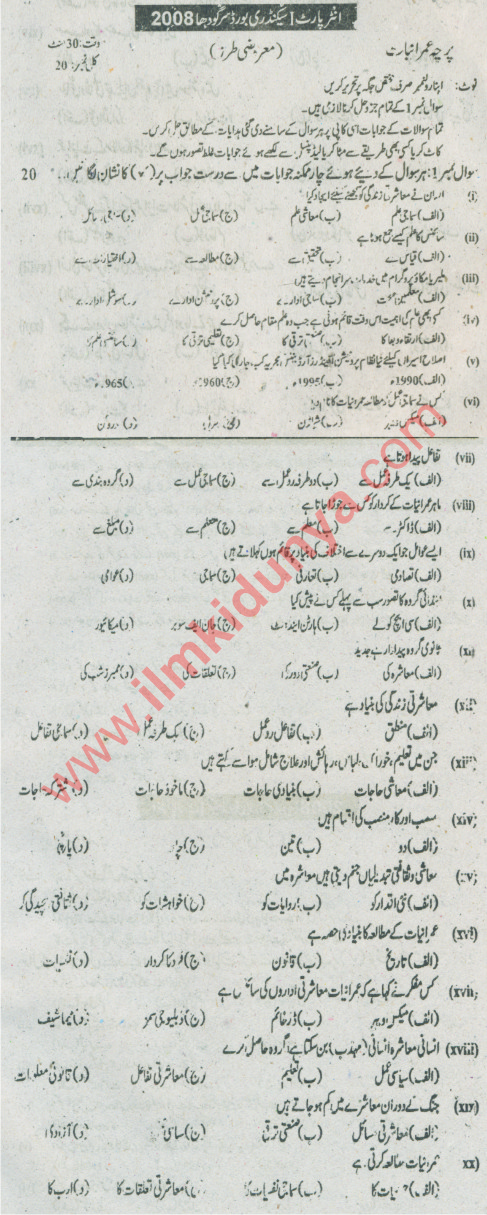 انٹر پارٹ I سیکنڈری بورڈ سرگودھا 2008
پرچہ عمرانیات (معروضی طرز) وقت: 30 منٹ
کل نمبر: 20
نوٹ: اپنا رولنمبر صرف مختص جگہ پر تحریر کریں
سوال نمبر 1 کے تمام جز حل کرنا لازمی ہیں۔
تمام سوالات کے جوابات اسی کاپی پر ہر سوال کے سامنے دی گئی ہدایات کے مطابق حل کریں۔
کاٹ کر یا کسی بھی طریقے سے مٹا کر یا لیڈ پنسل سے لکھے ہوئے جوابات غلط تصور ہوں گے۔
سوال نمبر 1: ہر سوال کے دیئے ہوئے چار ممکنہ جوابات میں سے درست جواب پر (✓) کا نشان لگائیں۔ 20
(i) انسان نے معاشرتی زندگی کو سمجھنے کیلئے ایجاد کیا
(الف) سماجی علم (ب) معاشی علم (ج) سماجی عمل (د) سماجی مسائل
(ii) سائنس کا علم کیسے جمع ہوتا ہے
(الف) قیاس سے (ب) تحقیق سے (ج) مطالعہ سے (د)
(iii) ملیریا مکاؤ پروگرام میں خدمات سرانجام دیتے ہیں
(الف) صحت (ب) سماجی ادارے (ج) ادارے (د) سوشل ادارے
(iv) کسی بھی علم کی اہمیت اس وقت قائم ہوتی ہے جب وہ علم مقام حاصل کرے
(الف) ارتقاء و بقا کا (ب) صنعتی ترقی کا (ج) تعلیمی ترقی کا (د) سائنسی علم کا
(v) اصلاح اسیراں کیلئے نیا نظام پروبیشن آفینڈرز آرڈیننس تجربہ کب جاری کیا گیا
(الف) 1990ء (ب) 1995ء (ج) 1960ء (د) 1965ء
(vi) کس نے سماجی عمل کے مطالعہ کو عمرانیات کا نام دیا
(الف) میکس ویبر (ب) (ج) (د)
(vii) تفاعل پیدا ہوتا ہے
(الف) یک طرفہ عمل سے (ب) دو طرفہ ردعمل سے (ج) سماجی عمل سے (د) گروہ بندی سے
(viii) ماہر عمرانیات کے کردار کو کس سے جوڑا جاتا ہے
(الف) ڈاکٹر سے (ب) معلم سے (ج) متعلم سے (د) مبلغ سے
(ix) ایسے عوامل جو ایک دوسرے سے اختلاف کی بنیاد پر قائم ہوں کہلاتے ہیں
(الف) تصادمی (ب) تعارفی (ج) سماجی (د) عوامی
(x) ابتدائی گروہ کا تصور سب سے پہلے کس نے پیش کیا
(الف) سی ایچ کولے (ب) ہارٹن اینڈ ہنٹ (ج) جان ایف سوبر (د) میکائیور
(xi) ثانوی گروہ پیداوار ہے جدید
(الف) معاشرہ کی (ب) صنعتی دور کی (ج) تعلقات کی (د) ممبر زشب کی
(xii) معاشرتی زندگی کی بنیاد ہے
(الف) منطق (ب) تفاعل و ردعمل (ج) یک طرفہ عمل (د) سماجی تفاعل
(xiii) جن میں تعلیم، خوراک، لباس، رہائش اور علاج شامل ہو اسے کہتے ہیں
(الف) معاشی حاجات (ب) بنیادی حاجات (ج) ماخوذ حاجات (د) مشترکہ حاجات
(xiv) منصب اور کار منصب کی اقسام ہیں
(الف) دو (ب) تین (ج) چار (د) پانچ
(xv) معاشی و ثقافتی تبدیلیاں جنم دیتی ہیں معاشرہ میں
(الف) نئی اقدار کو (ب) روایات کو (ج) خواہشات کو (د) ثقافتی پیچیدگی کو
(xvi) عمرانیات کے مطالعہ کا بنیادی حصہ ہے
(الف) تاریخ (ب) قانون (ج) فرد کا کردار (د) نفسیات
(xvii) کس مفکر نے کہا ہے کہ عمرانیات معاشرتی اداروں کی سائنس ہے
(الف) میکس ویبر (ب) ڈرخائم (ج) ڈبلیو جی سمنر (د)
(xviii) انسانی معاشرہ انسانی (مہذب) بن سکتا ہے اگر وہ حاصل کرے
(الف) سیاسی عمل (ب) تعلیم (ج) معاشرتی تفاعل (د) قانونی معلومات
(xix) جنگ کے دوران معاشرے میں کم ہو جاتے ہیں
(الف) معاشرتی مسائل (ب) صنعتی ترقی (ج) سیاسی (د) آزادی
(xx) عمرانیات مطالعہ کرتی ہے
(الف) کا (ب) سماجی نفسیات کا (ج) معاشرتی تعلقات کا (د) ادب کا
www.ilmkidunya.com